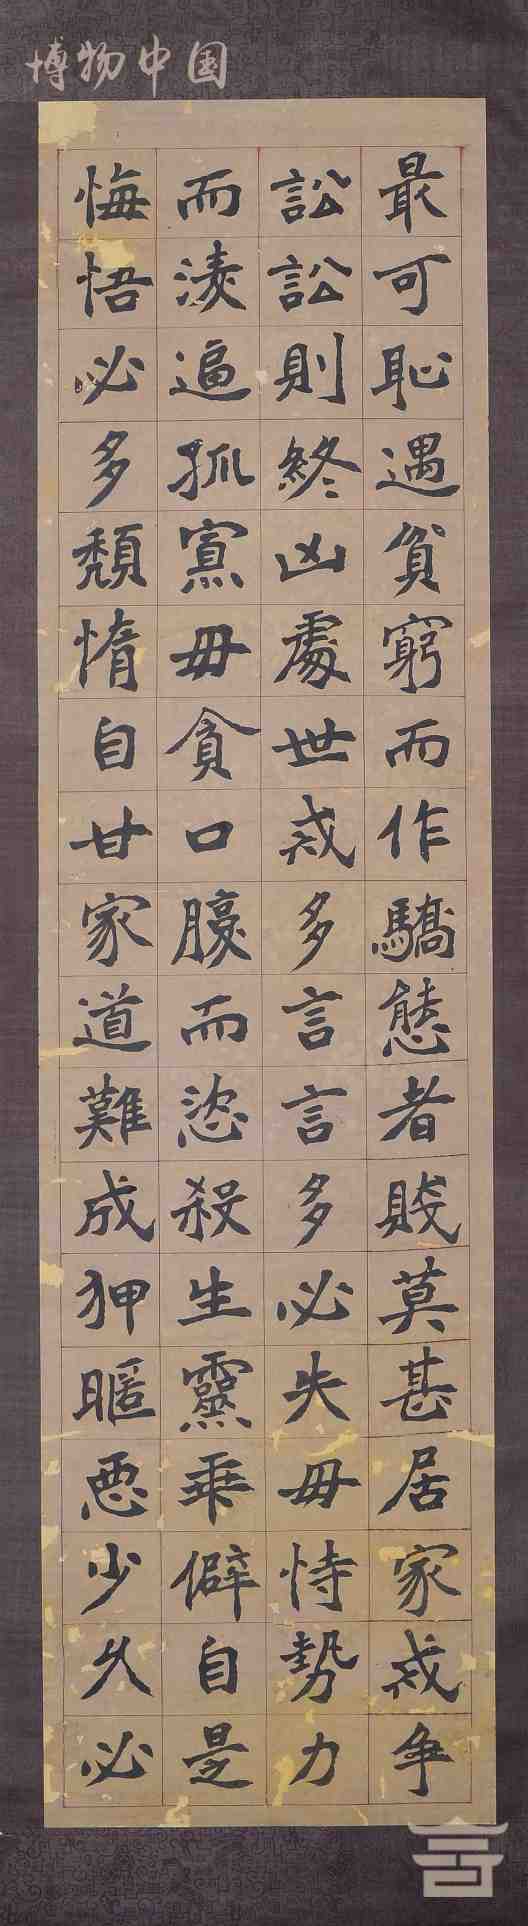 博物中国
最可恥遇貧窮而作驕態者賤莫甚居家戒爭
訟訟則終凶處世戒多言言多必失毋恃勢力
而淩逼孤寡毋貪口腹而恣殺生靈乖僻自是
悔悟必多頹惰自甘家道難成狎暱惡少久必